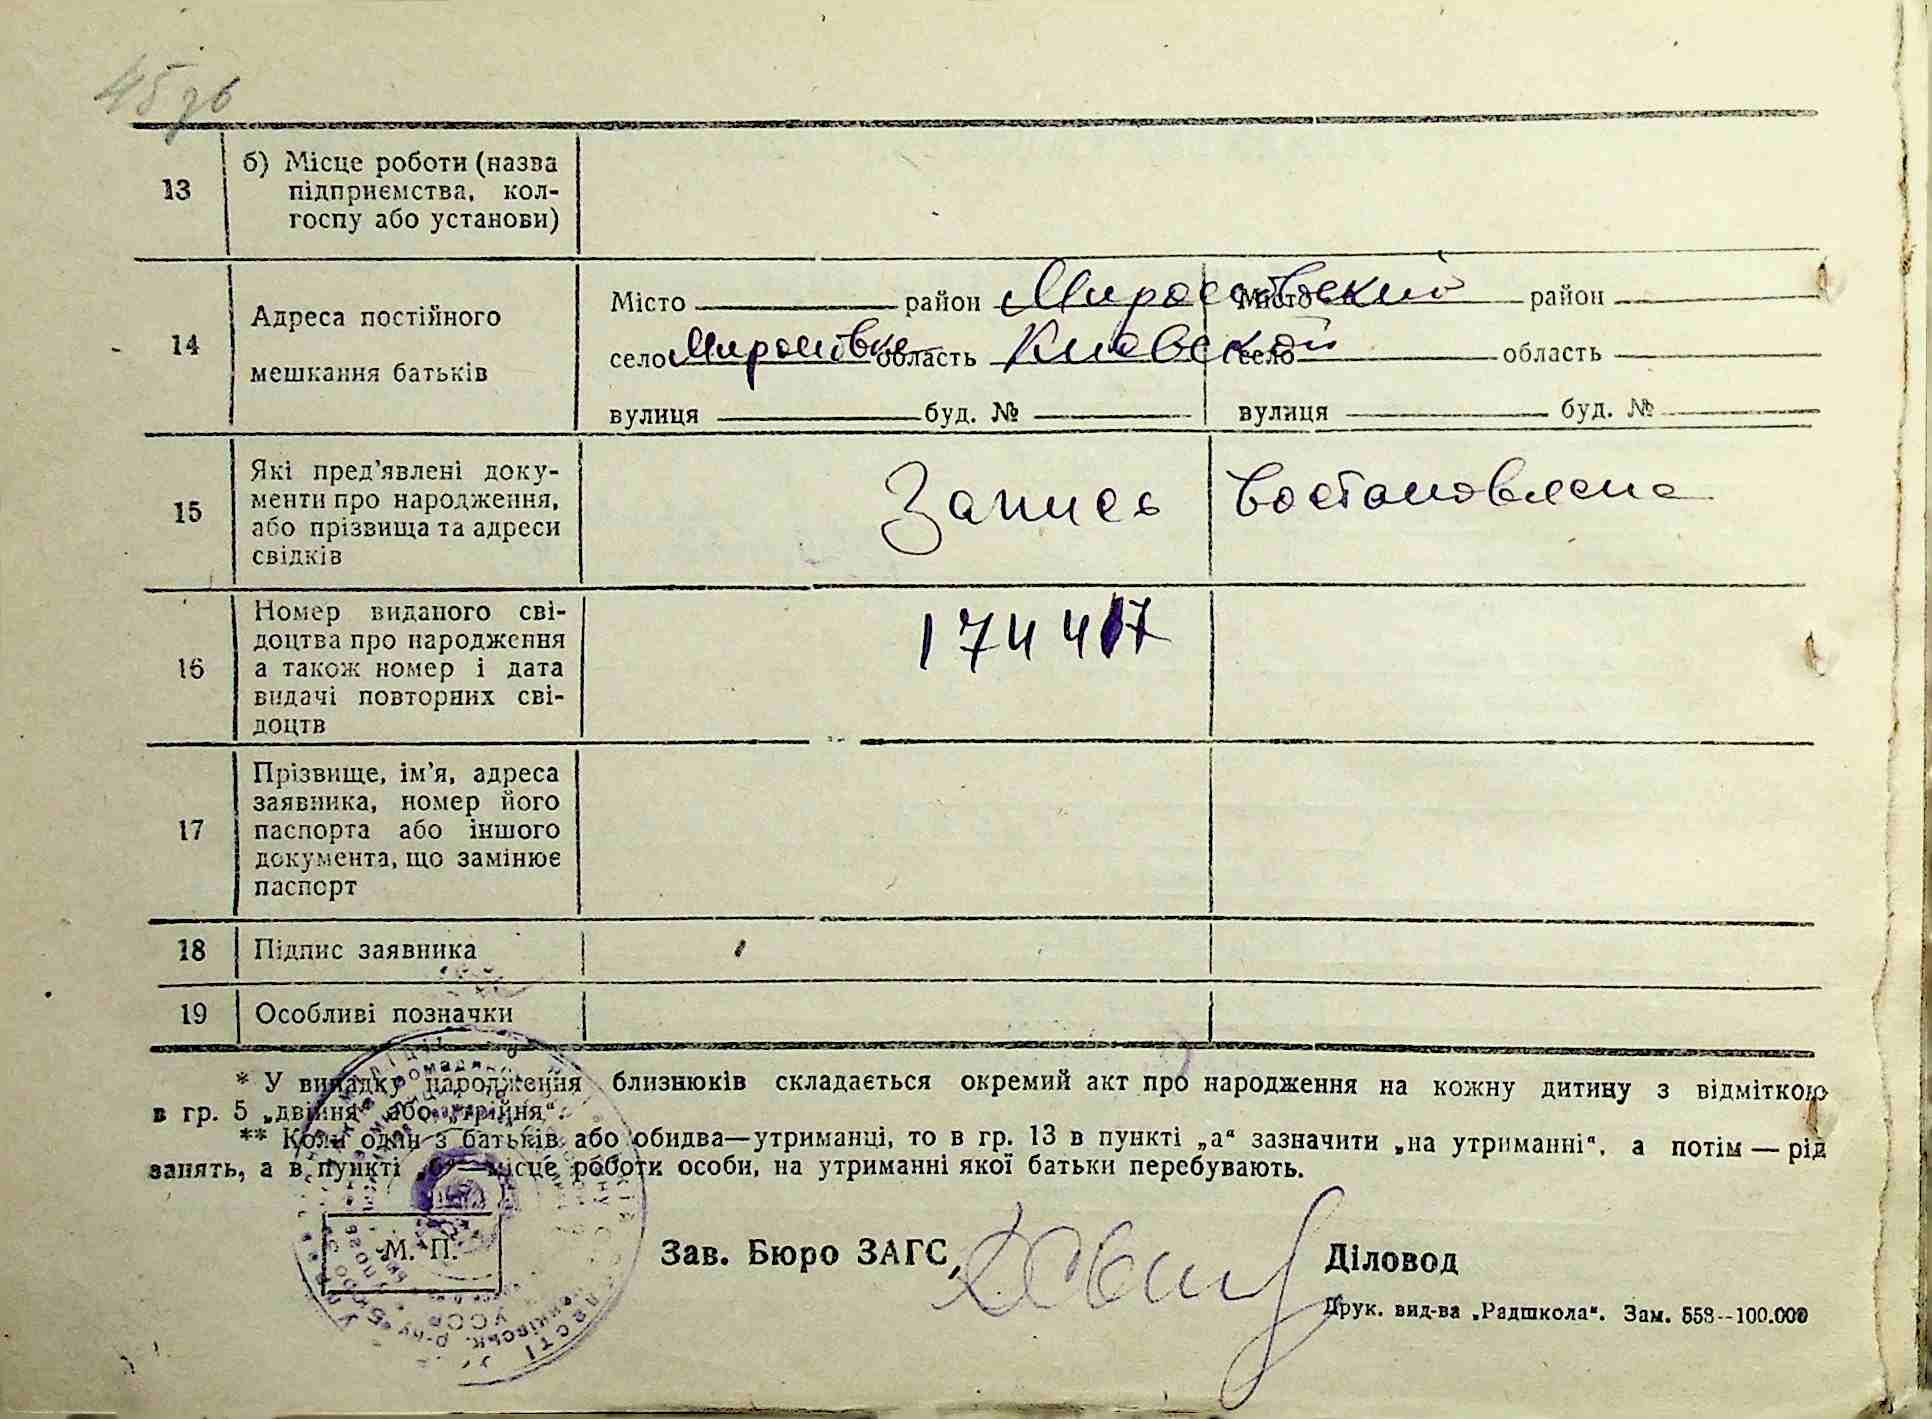 45 зв
13 б) Місце роботи (назва
підприємства, кол-
госпу або установи)
14 Адреса постійного
мешкання батьків
Місто район Мироновский Місто район
село Мироновка область Киевской село область
вулиця буд. № вулиця буд. №
15 Які пред’явлені доку-
менти про народження,
або прізвища та адреси
свідків
Запись Востановлена
16 Номер виданого сві-
доцтва про народження
а також номер і дата
видачі повторних сві-
доцтв
174417
17 Прізвище, ім’я, адреса
заявника, номер його
паспорта або іншого
документа, що замінює
паспорт
18 Підпис заявника
19 Особливі позначки
* У випадку народження близнюків складається окремий акт про народження на кожну дитину з відміткою
в гр. 5 „двійня“ або „трійня“.
** Коли один з батьків або обидва—утриманці, то в гр. 13 в пункті „а“ зазначити „на утриманні“, а потім — рід
занять, а в пункті „б“—місце роботи особи, на утриманні якої батьки перебувають.
М. П.
Зав. Бюро ЗАГС,
Діловод
Друк. вид-ва „Радшкола“. Зам. 558--100.000